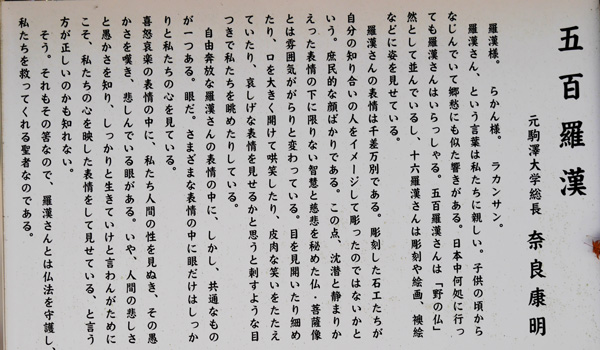 五百羅漢
元駒澤大学総長　奈良康明
羅漢様。　らかん様。　ラカンサン。
羅漢さん、という言葉は私たちに親しい。子供の頃から
なじんでいて郷愁にも似た響きがある。日本中何処に行っ
ても羅漢さんはいらっしゃる。五百羅漢さんは「野の仏」
然として並んでいるし、十六羅漢さんは彫刻や絵画、襖絵
などに姿を見せている。
羅漢さんの表情は千差万別である。彫刻した石工たちが
自分の知り合いの人をイメージして彫ったのではないかと
いう。庶民的な顔ばかりである。この点、沈潜と静まりか
えった表情の下に限りない智慧と慈悲を秘めた仏・菩薩像
とは雰囲気ががらりと変わっている。目を見開いたり細め
たり、口を大きく開けて哄笑したり、皮肉な笑いをたたえ
ていたり、哀しげな表情を見せるかと思うと刺すような目
つきで私たちを眺めたりしている。
自由奔放な羅漢さんの表情の中に、しかし、共通なもの
が一つある。眼だ。さまざまな表情の中に眼だけはしっか
りと私たちの心を見ている。
喜怒哀楽の表情の中に、私たち人間の性を見ぬき、その愚
かさを嘆き、悲しんでいる眼がある。いや、人間の悲しさ
と愚かさを知り、しっかりと生きていけと言わんがために
こそ、私たちの心を映した表情をして見せている、と言う
方が正しいのかも知れない。
そう。それもその筈なので、羅漢さんとは仏法を守護し、
私たちを救ってくれる聖者なのである。